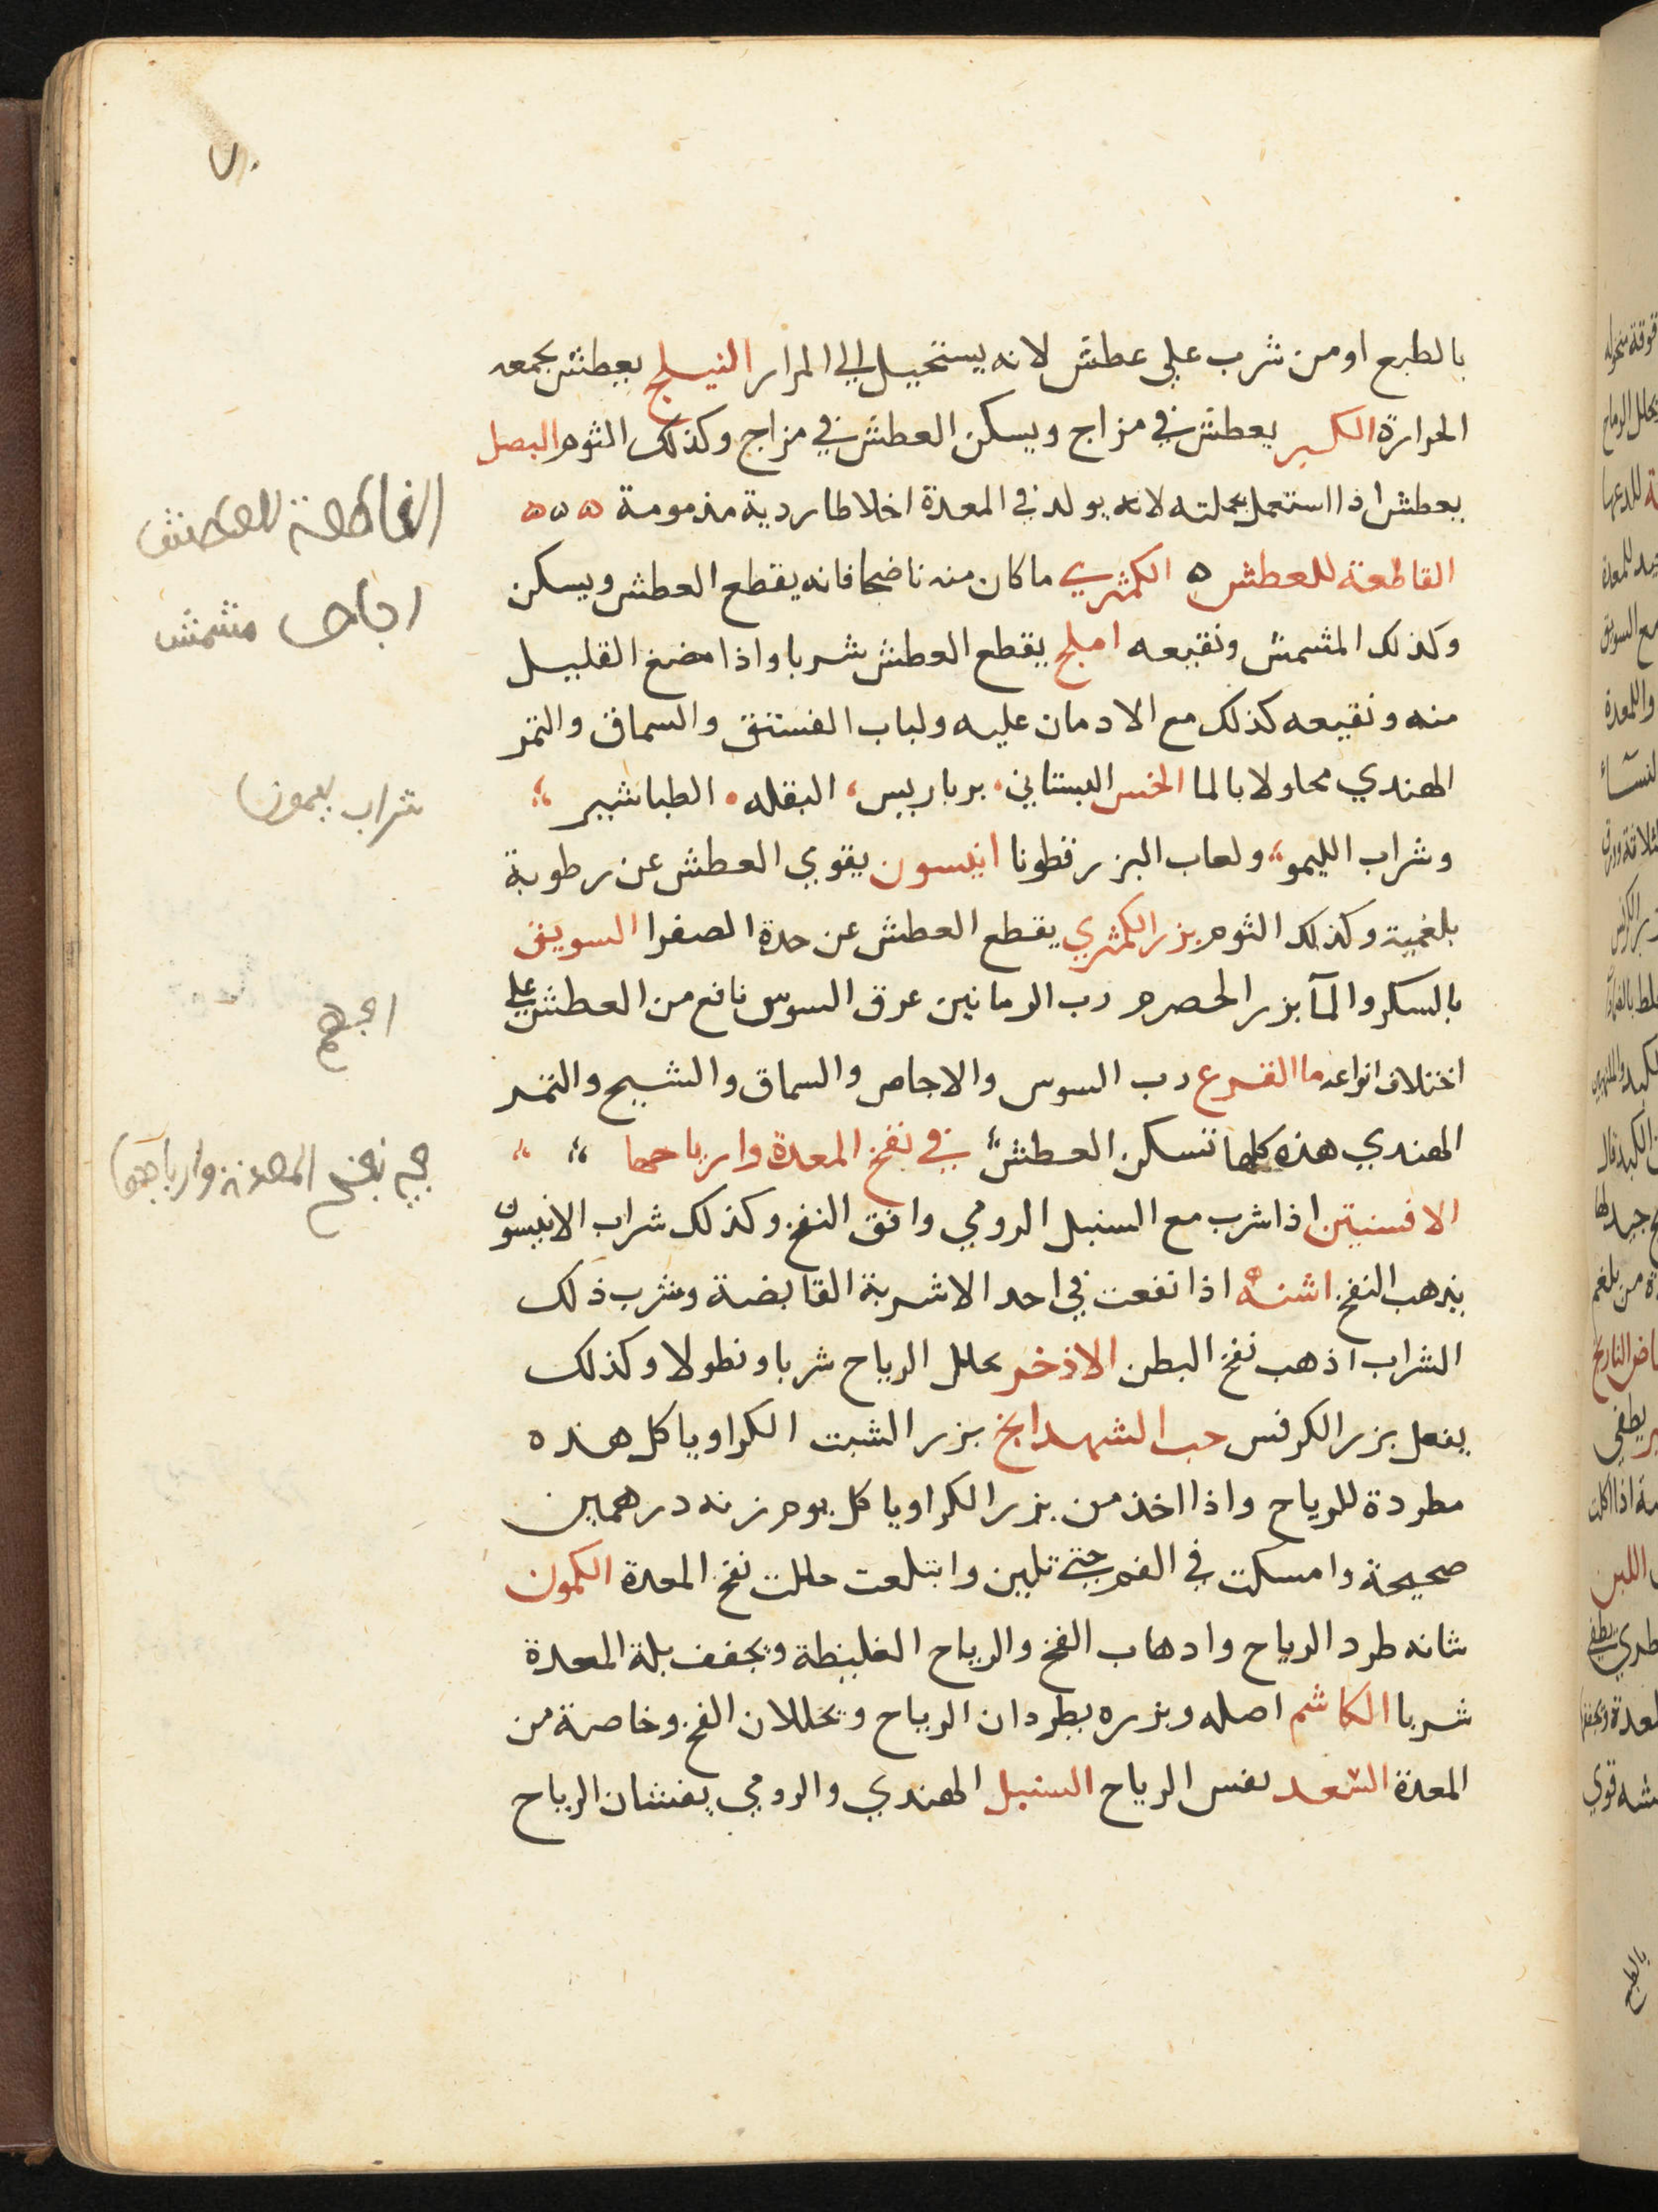 ٧٠
بالطبع او من شرب علي عطش لانه يستحيل الي المرار النيلج يعطش بجمعه
الحرارة الكبر يعطش في مزاج ويسكن العطش في مزاج وكذلك الثوم البصل
يعطش اذا استعمل بجملته لانه يولد في المعدة اخلاطا ردية مذمومة ه ه ه
القاطعة للعطش ه الكمثري ما كان منه ناضجا فانه يقطع العطش ويسكن
وكذلك المشمش ونقيعه املج يقطع العطش شربا واذا مضغ القليل
منه ونقيعه كذلك مع الادمان عليه ولباب الفستق والسماق والتمر
الهندي محاولا بالما الخس البستاني برباريس البقله الطباشير
وشراب الليمو ولعاب البزر قطونا انيسون يقوي العطش عن رطوبة
بلغمية وكذلك الثوم بزر الكمثري يقطع العطش عن حدة الصفرا السويق
بالسكر والمآ بزر الحصرم رب الرمانين عرق السوس نافع من العطش علي
اختلاف انواعه ما القرع رب السوس والاجاص والسماق والشيح والتمر
الهندي هذه كلها تسكن العطش في نفخ المعدة وارياحها
الافسنتين اذا شرب مع السنبل الرومي وافق النفخ وكذلك شراب الانيسون
يذهب النفخ اشنه اذا نقعت في احد الاشربة القابضة وشرب ذلك
الشراب آذهب نفخ البطن الاذخر يحلل الرياح شربا ونطولا وكذلك
يفعل بزر الكرفس حب الشهدانج بزر الشبت الكراويا كل هذه
مطردة للرياح واذا اخذ من بزر الكراويا كل يوم زنه درهمين
صحيحة وامسكت في الفم حتي تلين وابتلعت حللت نفخ المعدة الكمون
شانه طرد الرياح وادهاب النفخ والرياح الغليظة ويجفف بلة المعدة
شربا الكاشم اصله وبزره يطردان الرياح ويحللان النفخ وخاصة من
المعدة السعد يفس الرياح السنبل الهندي والرومي يفشان الرياح
القاطعة للعطش
اجاص مشمش
شراب ليمون
في نفخ المعدة وارياحها